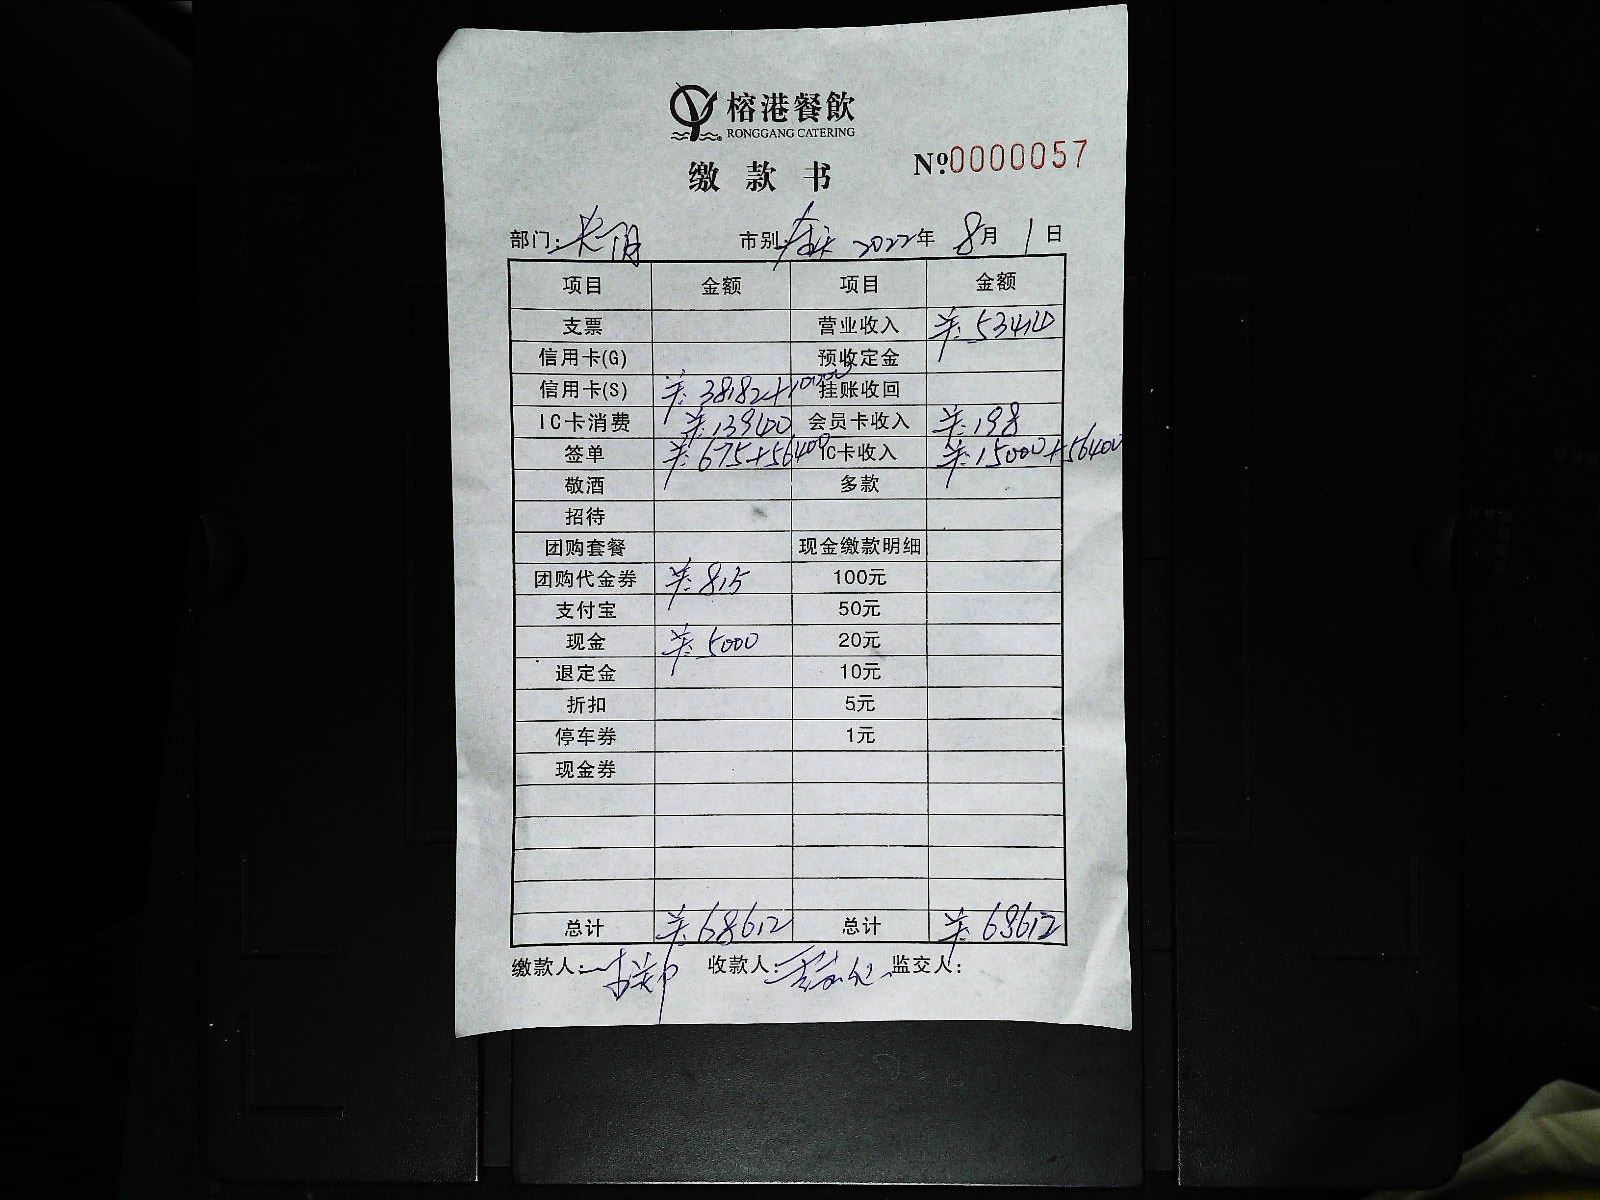 榕港餐飲
RONGGANG CATERING
缴款书 №.0000057
部门：长阳 市别：全天 2022年 8月 1日
项目 金额 项目 金额
支票 营业收入 ¥:53414
信用卡(G) 预收定金
信用卡(S) ¥:38182+10000 挂账收回
IC卡消费 ¥:13940 会员卡收入 ¥:198
签单 ¥:675+56400 IC卡收入 ¥:15000+56400
敬酒 多款
招待
团购套餐 现金缴款明细
团购代金券 ¥:815 100元
支付宝 50元
现金 ¥:5000 20元
退定金 10元
折扣 5元
停车券 1元
现金券
总计 ¥:68612 总计 ¥:68612
缴款人： 收款人： 监交人：